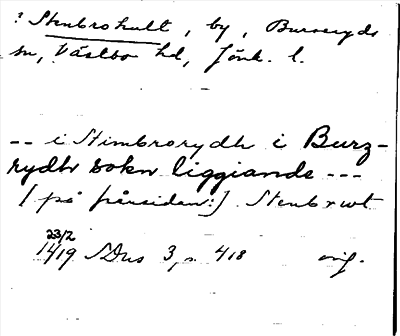 ? Stenbrohult, by, Burseryds
sn, Västbo hd, Jönk. l.
-- i Stimbrorydh i Burz-
rydhr sokn liggiande ---
[på frånsidan:] Stenbrwt
23/2
1419 SDns 3, s. 418 orig.